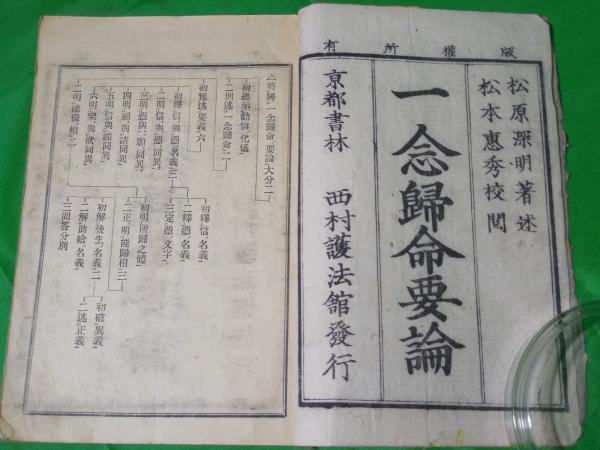 版權所有
松原深明著述
松本惠秀校閲
一念歸命要論
京都書林 西村護法館發行
△將釋一念歸命要論大分二
初總示勸信化儀
二別述一念歸命二
初豫述要義六
初釋信與憑名義三
二明信與憑同異
三明憑與願同異
四明願與請同異
五明信與願同異
六明樂與欲同異
二明能機相二
初釋信名義
二釋憑名義
三定憑文字
初明所歸之體
二正明能歸相三
初解後生名義二
二解助給名義
三問答分別
初破異義
二述正義